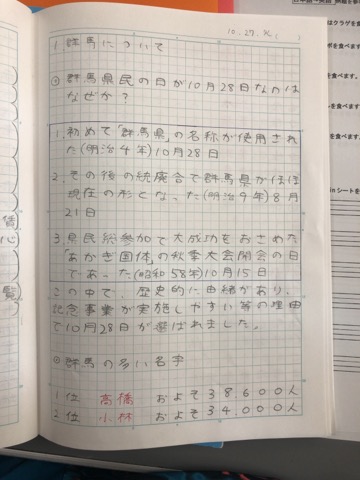 10.27.火.
1 群馬について
⊙群馬県民の日が10月28日なのは
なぜか?
1.初めて「群馬県の名称が使用され
た(明治4年)10月28日
2.その後の統廃合で群馬県がほぼ
現在の形となった(明治9年)8月
21日
3.県民総参加で大成功をおさめた
「あかぎ国体」の秋季大会開会の日
であった(昭和58年)10月15日
この中で、歴史的に由緒があり、
記念事業が実施しやすい等の理由
で10月28日が選ばれました。
⊙群馬の多い名字
1位 高橋 およそ38600人
2位 小林 およそ34,000人
はクラゲを食
を食べます。
を食べます。
を食べます。
inシートを